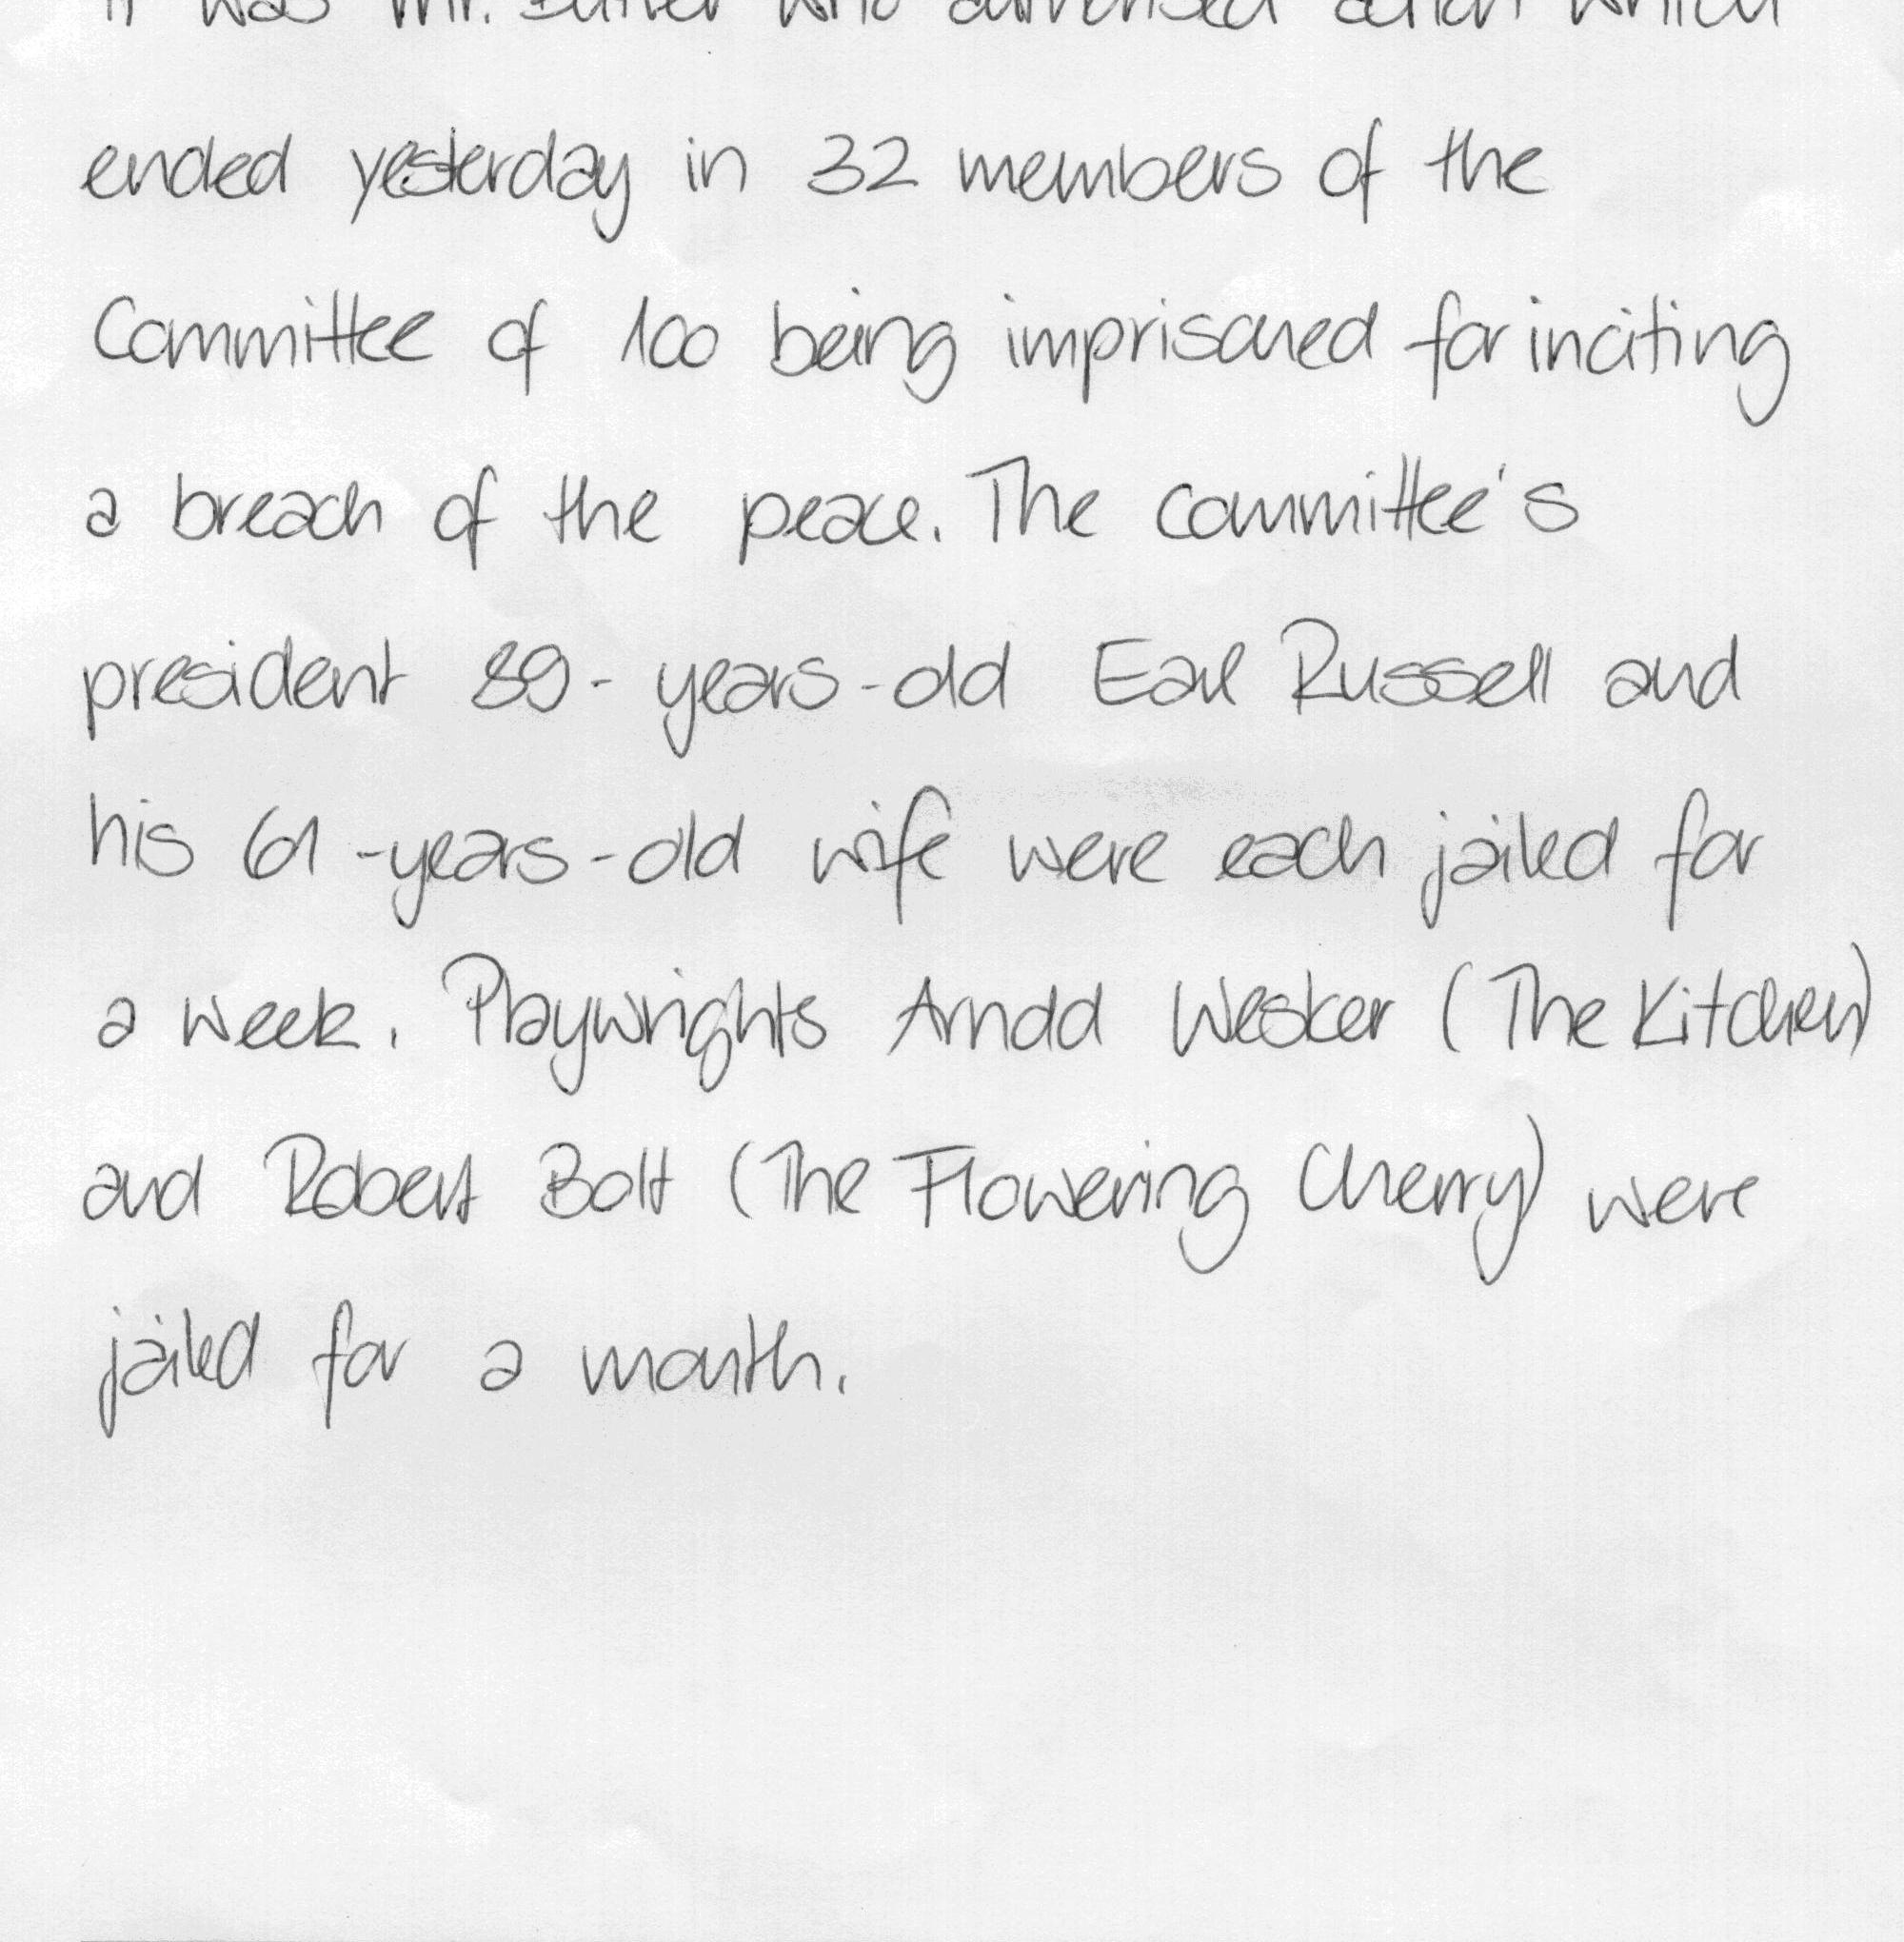 It was Mr. Butler who authorised action which
ended yesterday in 32 members of the
Committee of 100 being imprisoned for inciting
a breach of the peace. The committee's
president 89-years-old Earl Russell and
his 61-years-old wife were each jailed for
a week. Playwrights Arnold Wesker (The Kitchen)
and Robert Bolt (The Flowering Cherry) were
jailed for a month.